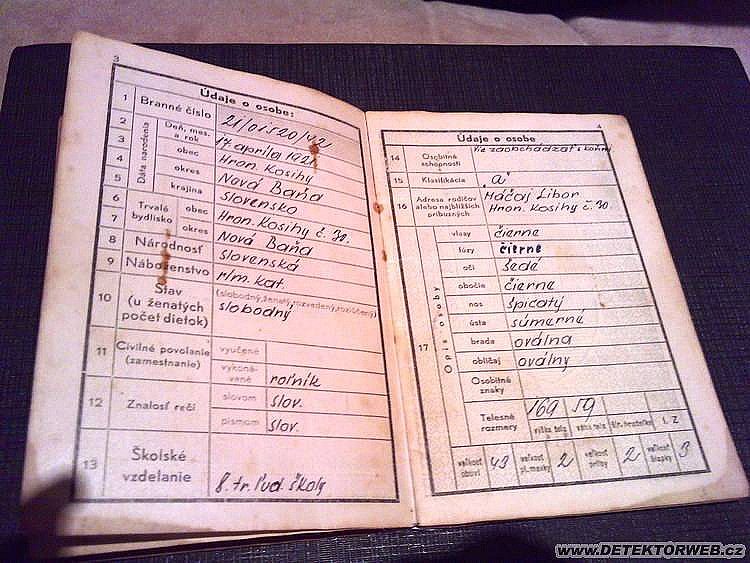 3
Údaje o osobe:
1 Branné číslo 21/01520/42
2 Dáta narodenia Deň, mes. a rok 17 apríla 1921
3 obec Hron. Kosihy
4 okres Nová Baňa
5 krajina Slovensko
6 Trvalé bydlisko obec Hron. Kosihy č. 30.
7 okres Nová Baňa
8 Národnosť slovenská
9 Náboženstvo r/m. kat.
10 Stav (u ženatých počet dietok) (slobodný, ženatý, rozvedený, rozlúčený)
slobodný
11 Civilné povolanie (zamestnanie) vyučené
vykonávané roľník
12 Znalosť rečí slovom slov.
písmom slov.
13 Školské vzdelanie 8. tr. ľud. školy
4
Údaje o osobe
14 Osobitné schopnosti Vie zaobchádzať s koňmi
15 Klasifikácia "a"
16 Adresa rodičov alebo najbližších príbuzných Háčaj Libor
Hron. Kosihy č. 30.
17 Opis osoby
vlasy čierne
fúzy čierne
oči šedé
obočie čierne
nos špicatý
ústa súmerné
brada oválna
obličaj oválny
Osobitné znaky
Telesné rozmery 169 59
výška tela váha tela šír. hrudníka
veľkosť obuvi 43 veľkosť pl. masky 2 veľkosť prilby 2 veľkosť čiapky 3
www.DETEKTORWEB.cz